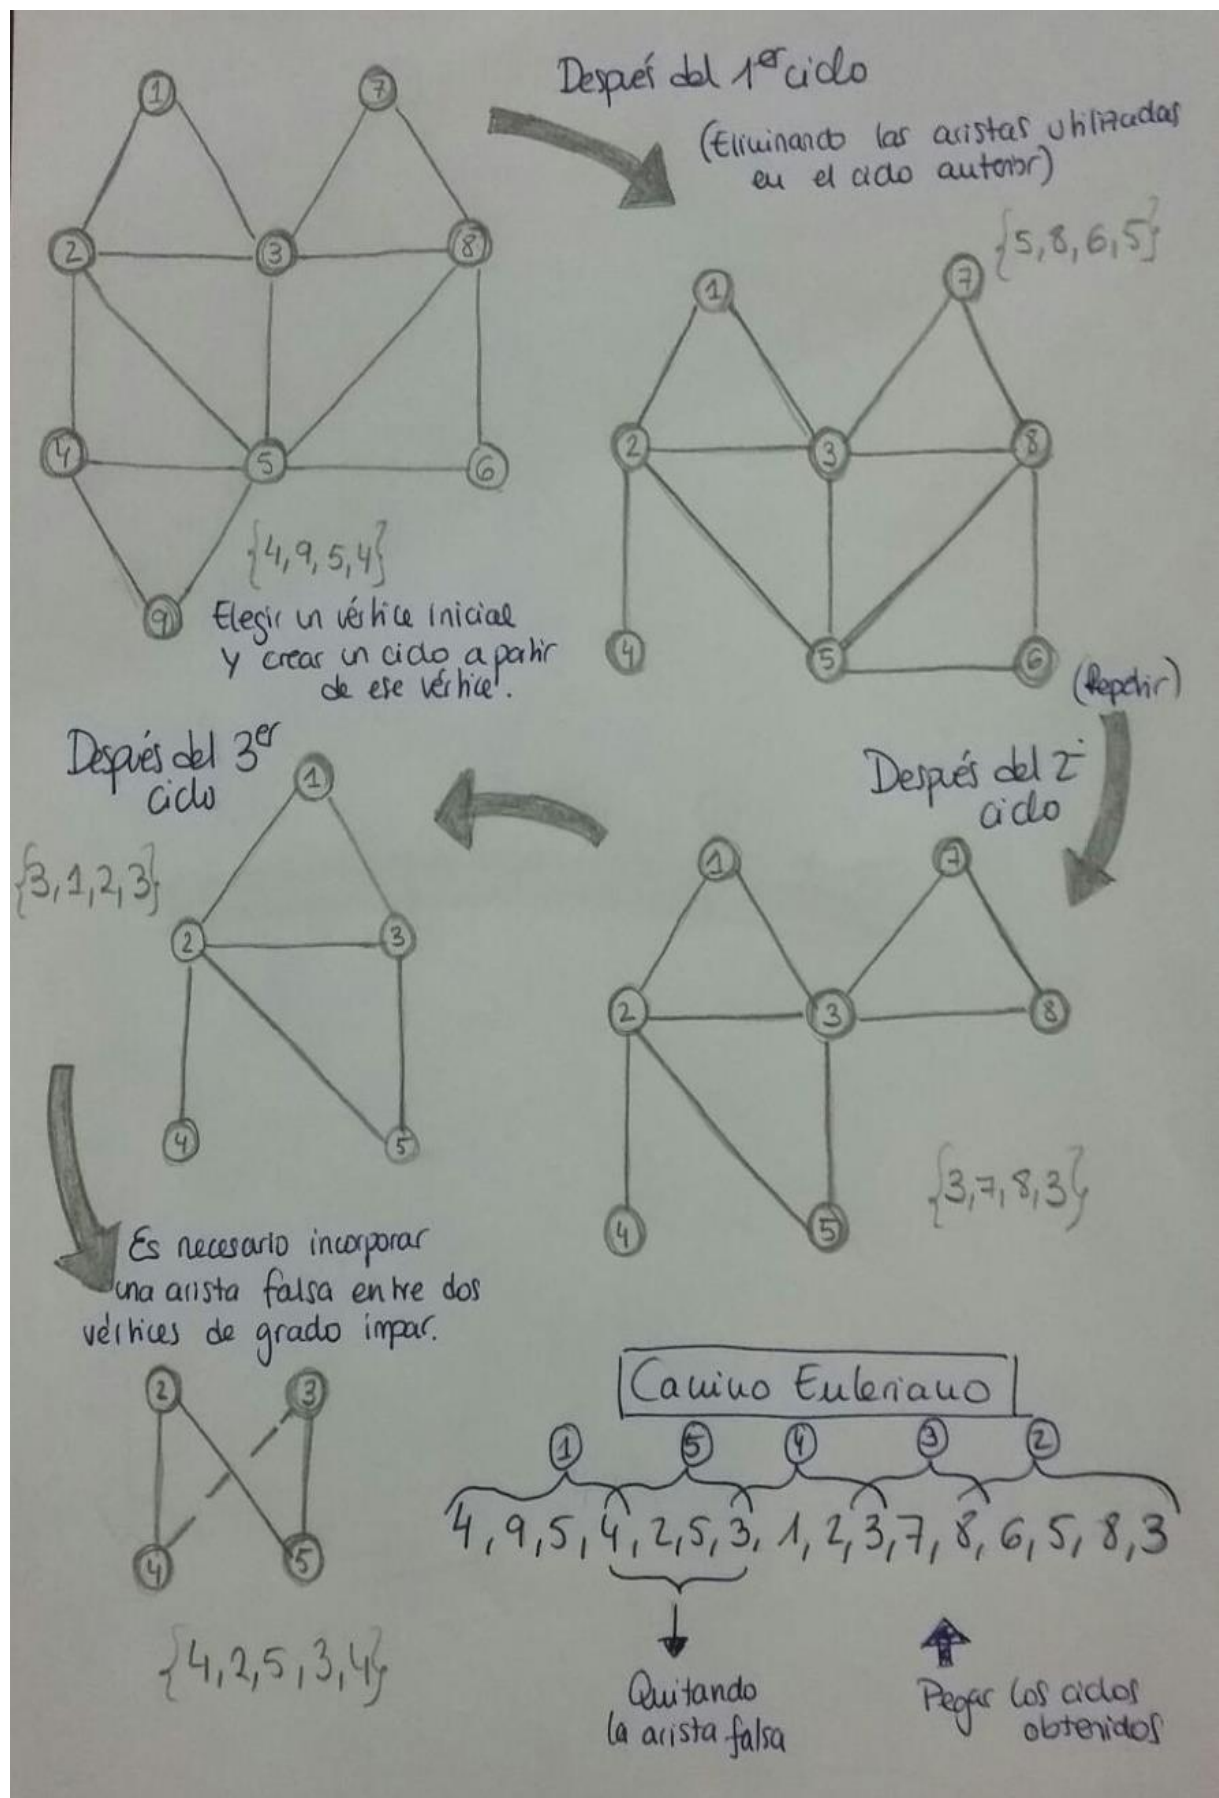 1
7
2
3
8
4
5
6
9
{4,9,5,4}
Elegir un vértice inicial
y crear un ciclo a partir
de ese vértice.
Después del 1er ciclo
(Eliminando las aristas utilizadas
en el ciclo anterior)
{5,8,6,5}
1
7
2
3
8
4
5
6
(Repetir)
Después del 2º
ciclo
1
7
2
3
8
4
5
{3,7,8,3}
Después del 3er
ciclo
{3,1,2,3}
1
2
3
4
5
Es necesario incorporar
una arista falsa entre dos
vértices de grado impar.
2
3
4
5
{4,2,5,3,4}
Camino Euleriano
1 5 4 3 2
4,9,5,4,2,5,3,1,2,3,7,8,6,5,8,3
Quitando
la arista falsa
Pegar los ciclos
obtenidos